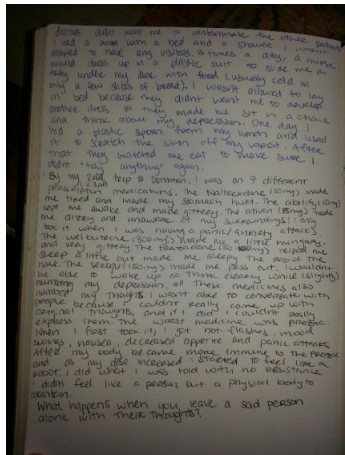 doctors didn't want me to contaminate the other patients
I had a room with a bed and a shower. I wasn't
allowed to have any visitors. 3 times a day, a nurse
would dress up in a plastic suit to slide me a
tray under my door with food (usually cold as
my a few slices of bread). I wasn't allowed to lay
in bed because they didn't want me to develop
another illness so they made me sit in a chair
and think about my depression. One day I
hid a plastic spoon from my lunch and used
it to scratch the skin off my wrist. After
that they watched me eat to make sure I
didn't "try" anything again.
By my 2nd trip to common, I was on 7 different
prescription medications. The Naltrexone (50mg) made
me tired and made my stomach hurt. The abilify (10mg)
kept me awake and made jittery. The ativan (15mg) made
me dizzy and unaware of my surroundings; I only
took it when I was having a panic/anxiety attack.
The wellbutrin (300mg) made me a little hungry
and very jittery. The trazodone (150 mg) helped me
sleep a little but made me sleepy the rest of the
time. The seroquel (50mg) made me pass out, I wouldn't
be able to wake up or think clearly while (slightly)
numbing my depression. All these medicines also
numbed my thoughts. I wasn't able to converse with
people because I couldn't really come up with
original thoughts, and if I did I couldn't really
express them. The worst medicine was prozac.
When I first took it, I got hot-flashes, mood
swings, nausea, decreased appetite and panic attacks.
After my body became more immune to the prozac
and as my dose increased I started to feel like a
robot. I did what I was told with no resistance.
I didnt feel like a person but a physical body to
maintain.
What happens when you leave a sad person
alone with their thoughts?